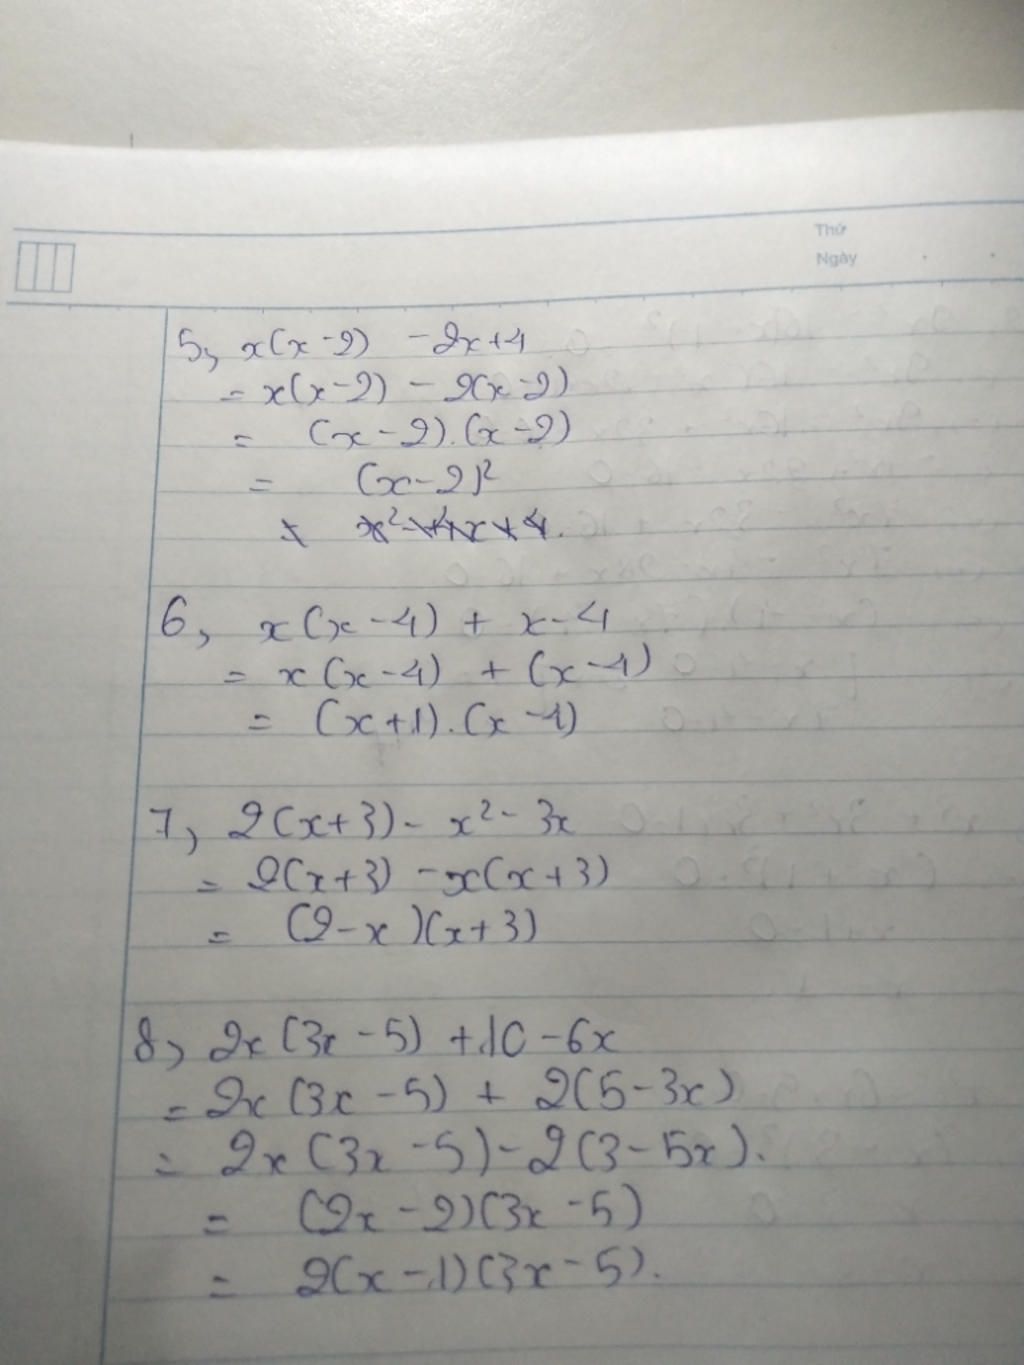 Thứ
Ngày
5, x(x-2) -2x+4
= x(x-2) - 2(x-2)
= (x-2).(x-2)
= (x-2)²
6, x(x-4) + x-4
= x(x-4) + (x-4)
= (x+1).(x-4)
7, 2(x+3) - x² - 3x
= 2(x+3) - x(x+3)
= (2-x)(x+3)
8, 2x(3x-5) + 10 - 6x
= 2x(3x-5) + 2(5-3x)
= 2x(3x-5) - 2(3-5x).
= (2x-2)(3x-5)
= 2(x-1)(3x-5).